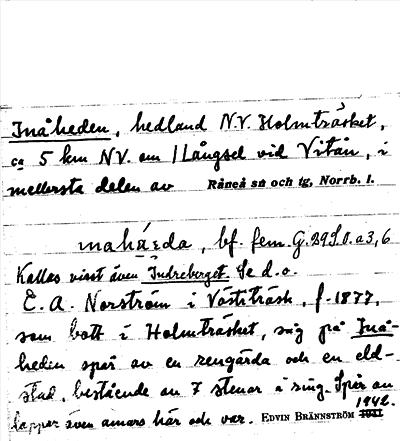 Inåheden, hedland N.V. Holmträsket,
ca 5 km NV. om Långsel vid Vitån, i
mellersta delen av Råneå sn och tg, Norrb. l.
inahärda, bf. fem. G.
Kallas visst även Indreberget. Se d.o.
E. A. Norström i Västiträsk, f. 1877,
som bott i Holmträsket, såg på Inå-
heden spår av en rengärda och en eld-
stad, bestående av 7 stenar i ring. Spår av
lappar även annars här och var. EDVIN BRÄNNSTRÖM 1942.